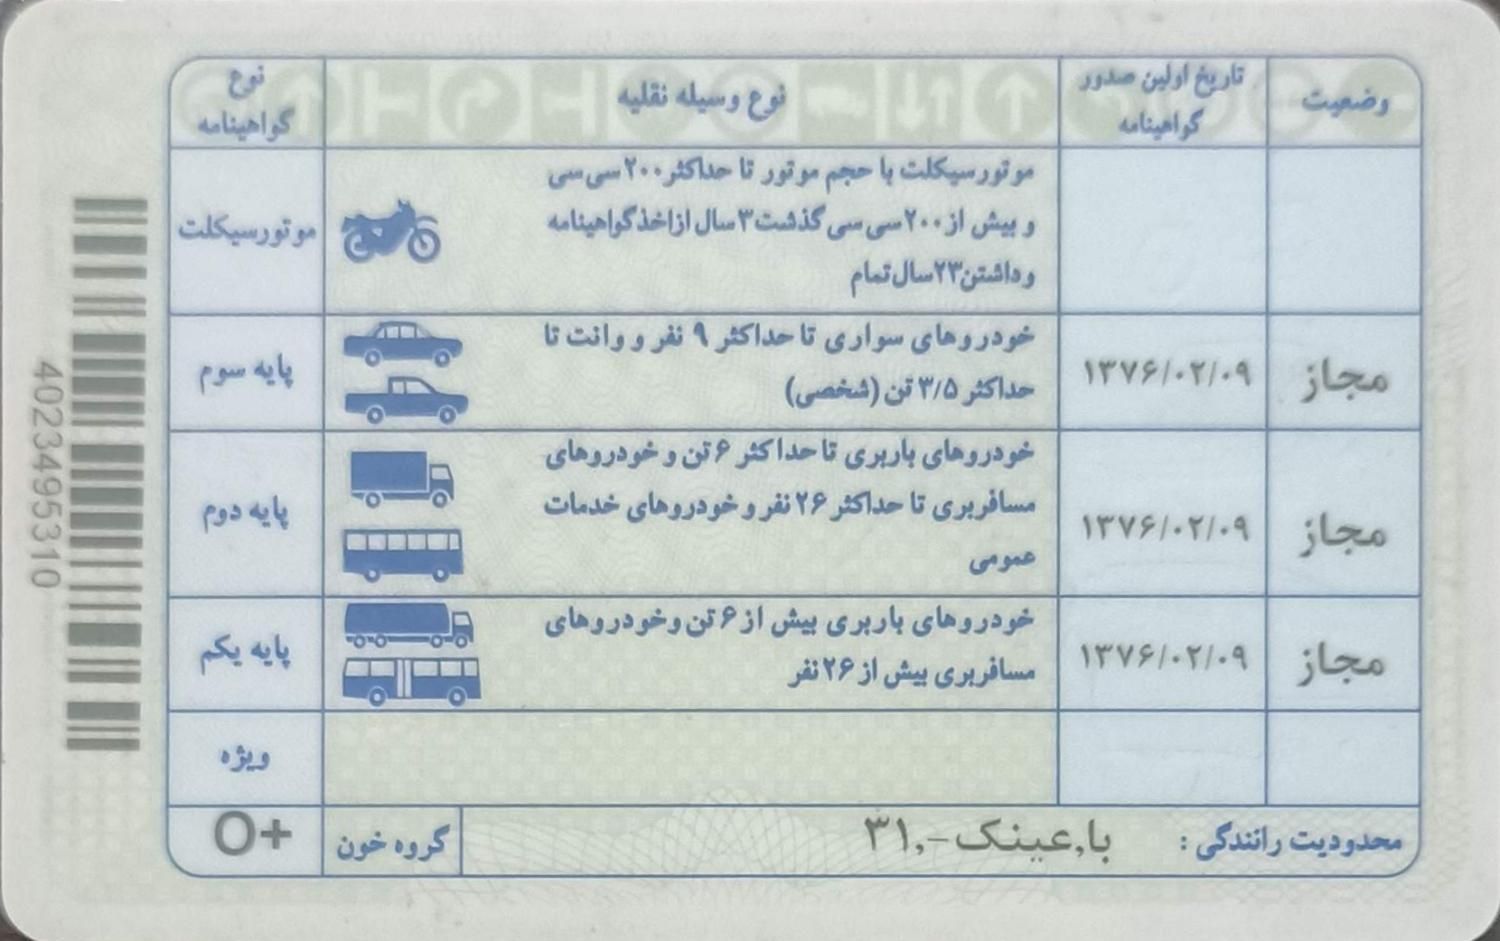 وضعیت
تاریخ اولین صدور
گواهینامه
نوع وسیله نقلیه
نوع
گواهینامه
موتورسیکلت با حجم موتور تا حداکثر ۲۰۰ سی سی
و بیش از ۲۰۰ سی سی گذشت ۳ سال از اخذ گواهینامه
و داشتن ۲۳ سال تمام
موتورسیکلت
مجاز
۱۳۷۶/۰۲/۰۹
خودروهای سواری تا حداکثر ۹ نفر و وانت تا
حداکثر ۳/۵ تن (شخصی)
پایه سوم
مجاز
۱۳۷۶/۰۲/۰۹
خودروهای باربری تا حداکثر ۶ تن و خودروهای
مسافربری تا حداکثر ۲۶ نفر و خودروهای خدمات
عمومی
پایه دوم
مجاز
۱۳۷۶/۰۲/۰۹
خودروهای باربری بیش از ۶ تن و خودروهای
مسافربری بیش از ۲۶ نفر
پایه یکم
ویژه
محدودیت رانندگی : با,عینک-,۳۱
گروه خون
O+
4023495310